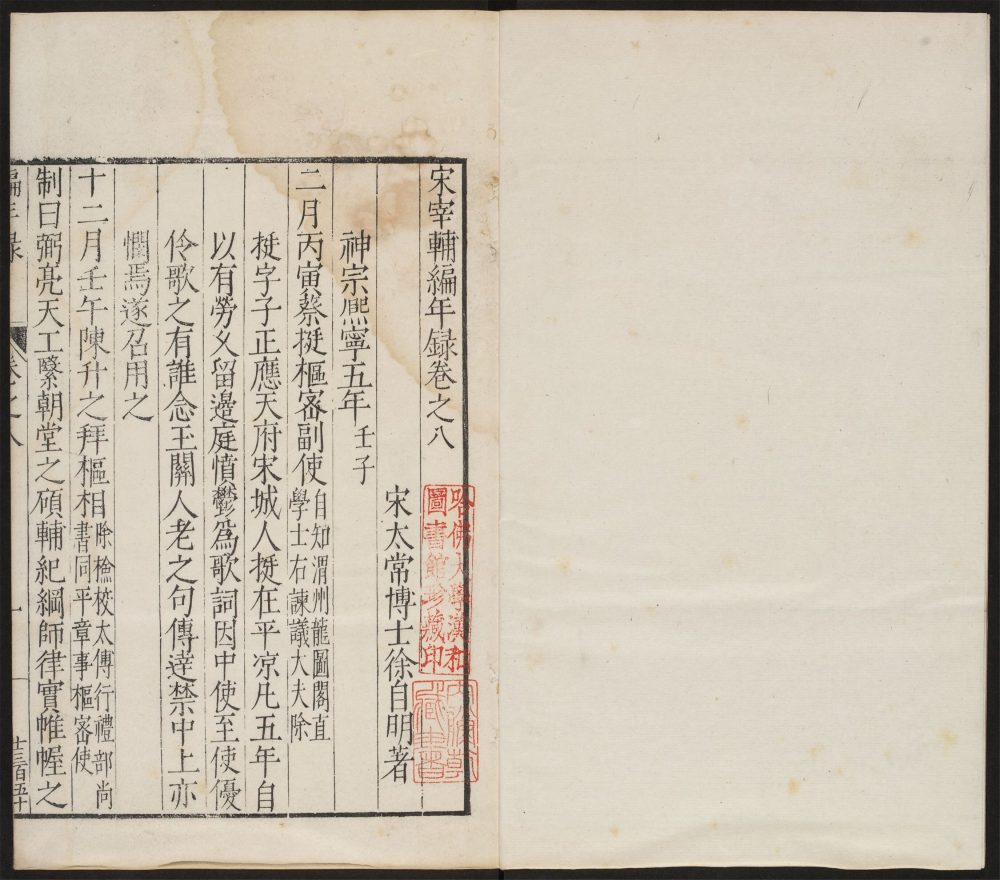 宋宰輔編年録卷之八
宋太常博士徐自明著
神宗熈寧五年壬子
二月丙寅蔡挺樞密副使自知渭州龍圖閣直
學士右諫議大夫除
挺字子正應天府宋城人挺在平凉凡五年自
以有勞乆留邉庭憤鬱為歌詞因中使至使優
伶歌之有誰念玉關人老之句傳達禁中上亦
憫焉遂召用之
十二月壬午陳升之拜樞相除檢校太傅行禮部尚
書同平章事樞密使
制曰弼亮天工繄朝堂之碩輔紀綱師律實帷幄之
編年録
卷之八
一
哈佛大學漢和
圖書館珍藏印